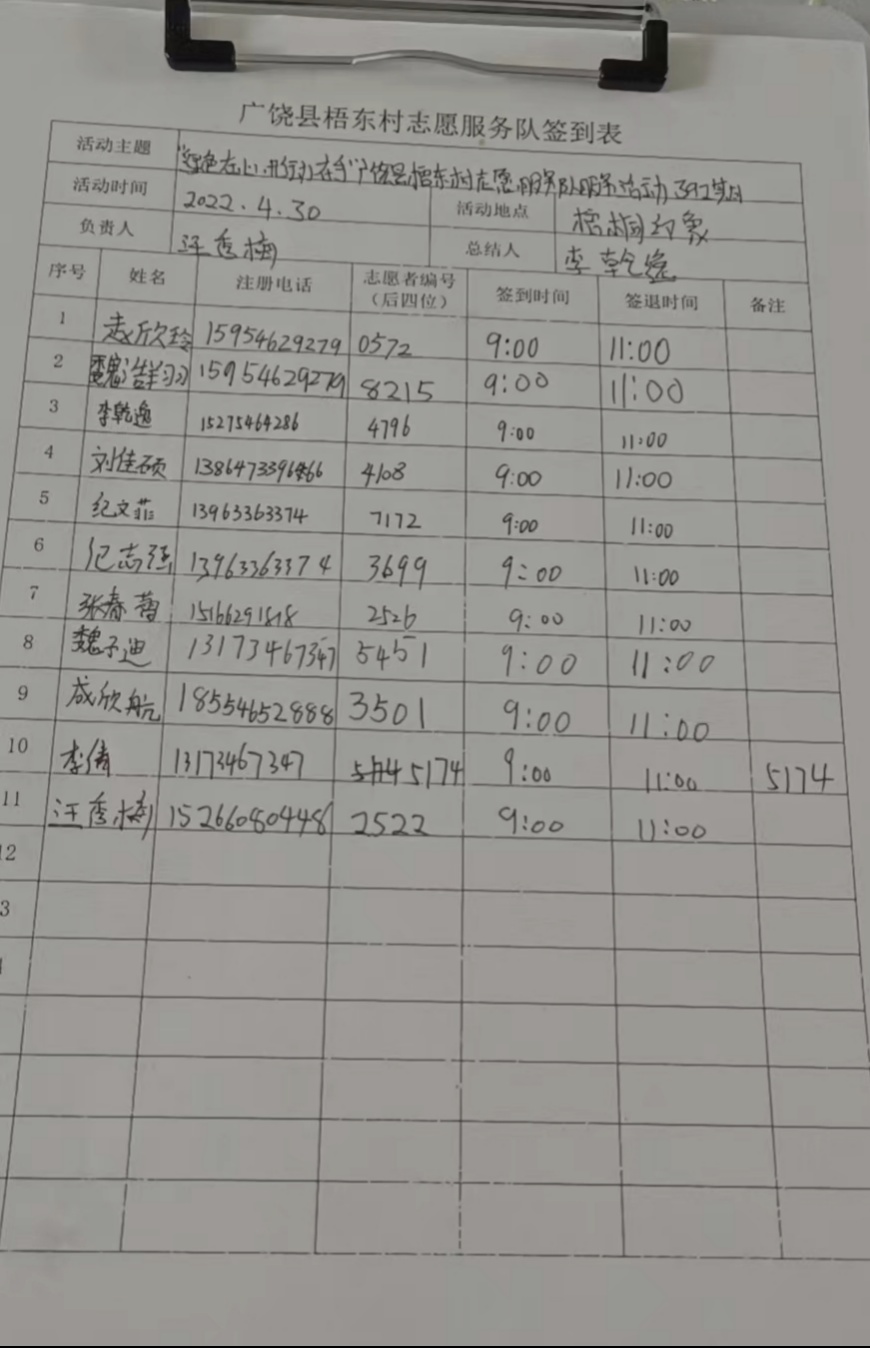 广饶县梧东村志愿服务队签到表
活动主题 广饶县梧东村志愿服务队服务活动
活动时间 2022.4.30 活动地点 梧桐印象
负责人 汪秀梅 总结人 李乾逸
序号 姓名 注册电话 志愿者编号（后四位） 签到时间 签退时间 备注
1 赵欣玲 15954629279 0572 9:00 11:00
2 魏 15954629279 8215 9:00 11:00
3 李乾逸 15275464286 4796 9:00 11:00
4 刘佳硕 4108 9:00 11:00
5 纪文菲 13963363374 7172 9:00 11:00
6 纪志强 13963363374 3699 9:00 11:00
7 张春 15166291818 2526 9:00 11:00
8 魏子迪 13173467347 5451 9:00 11:00
9 成欣航 18554652888 3501 9:00 11:00
10 李倩 13173467347 5174 9:00 11:00 5174
11 汪秀梅 15266080448 2522 9:00 11:00
12
3